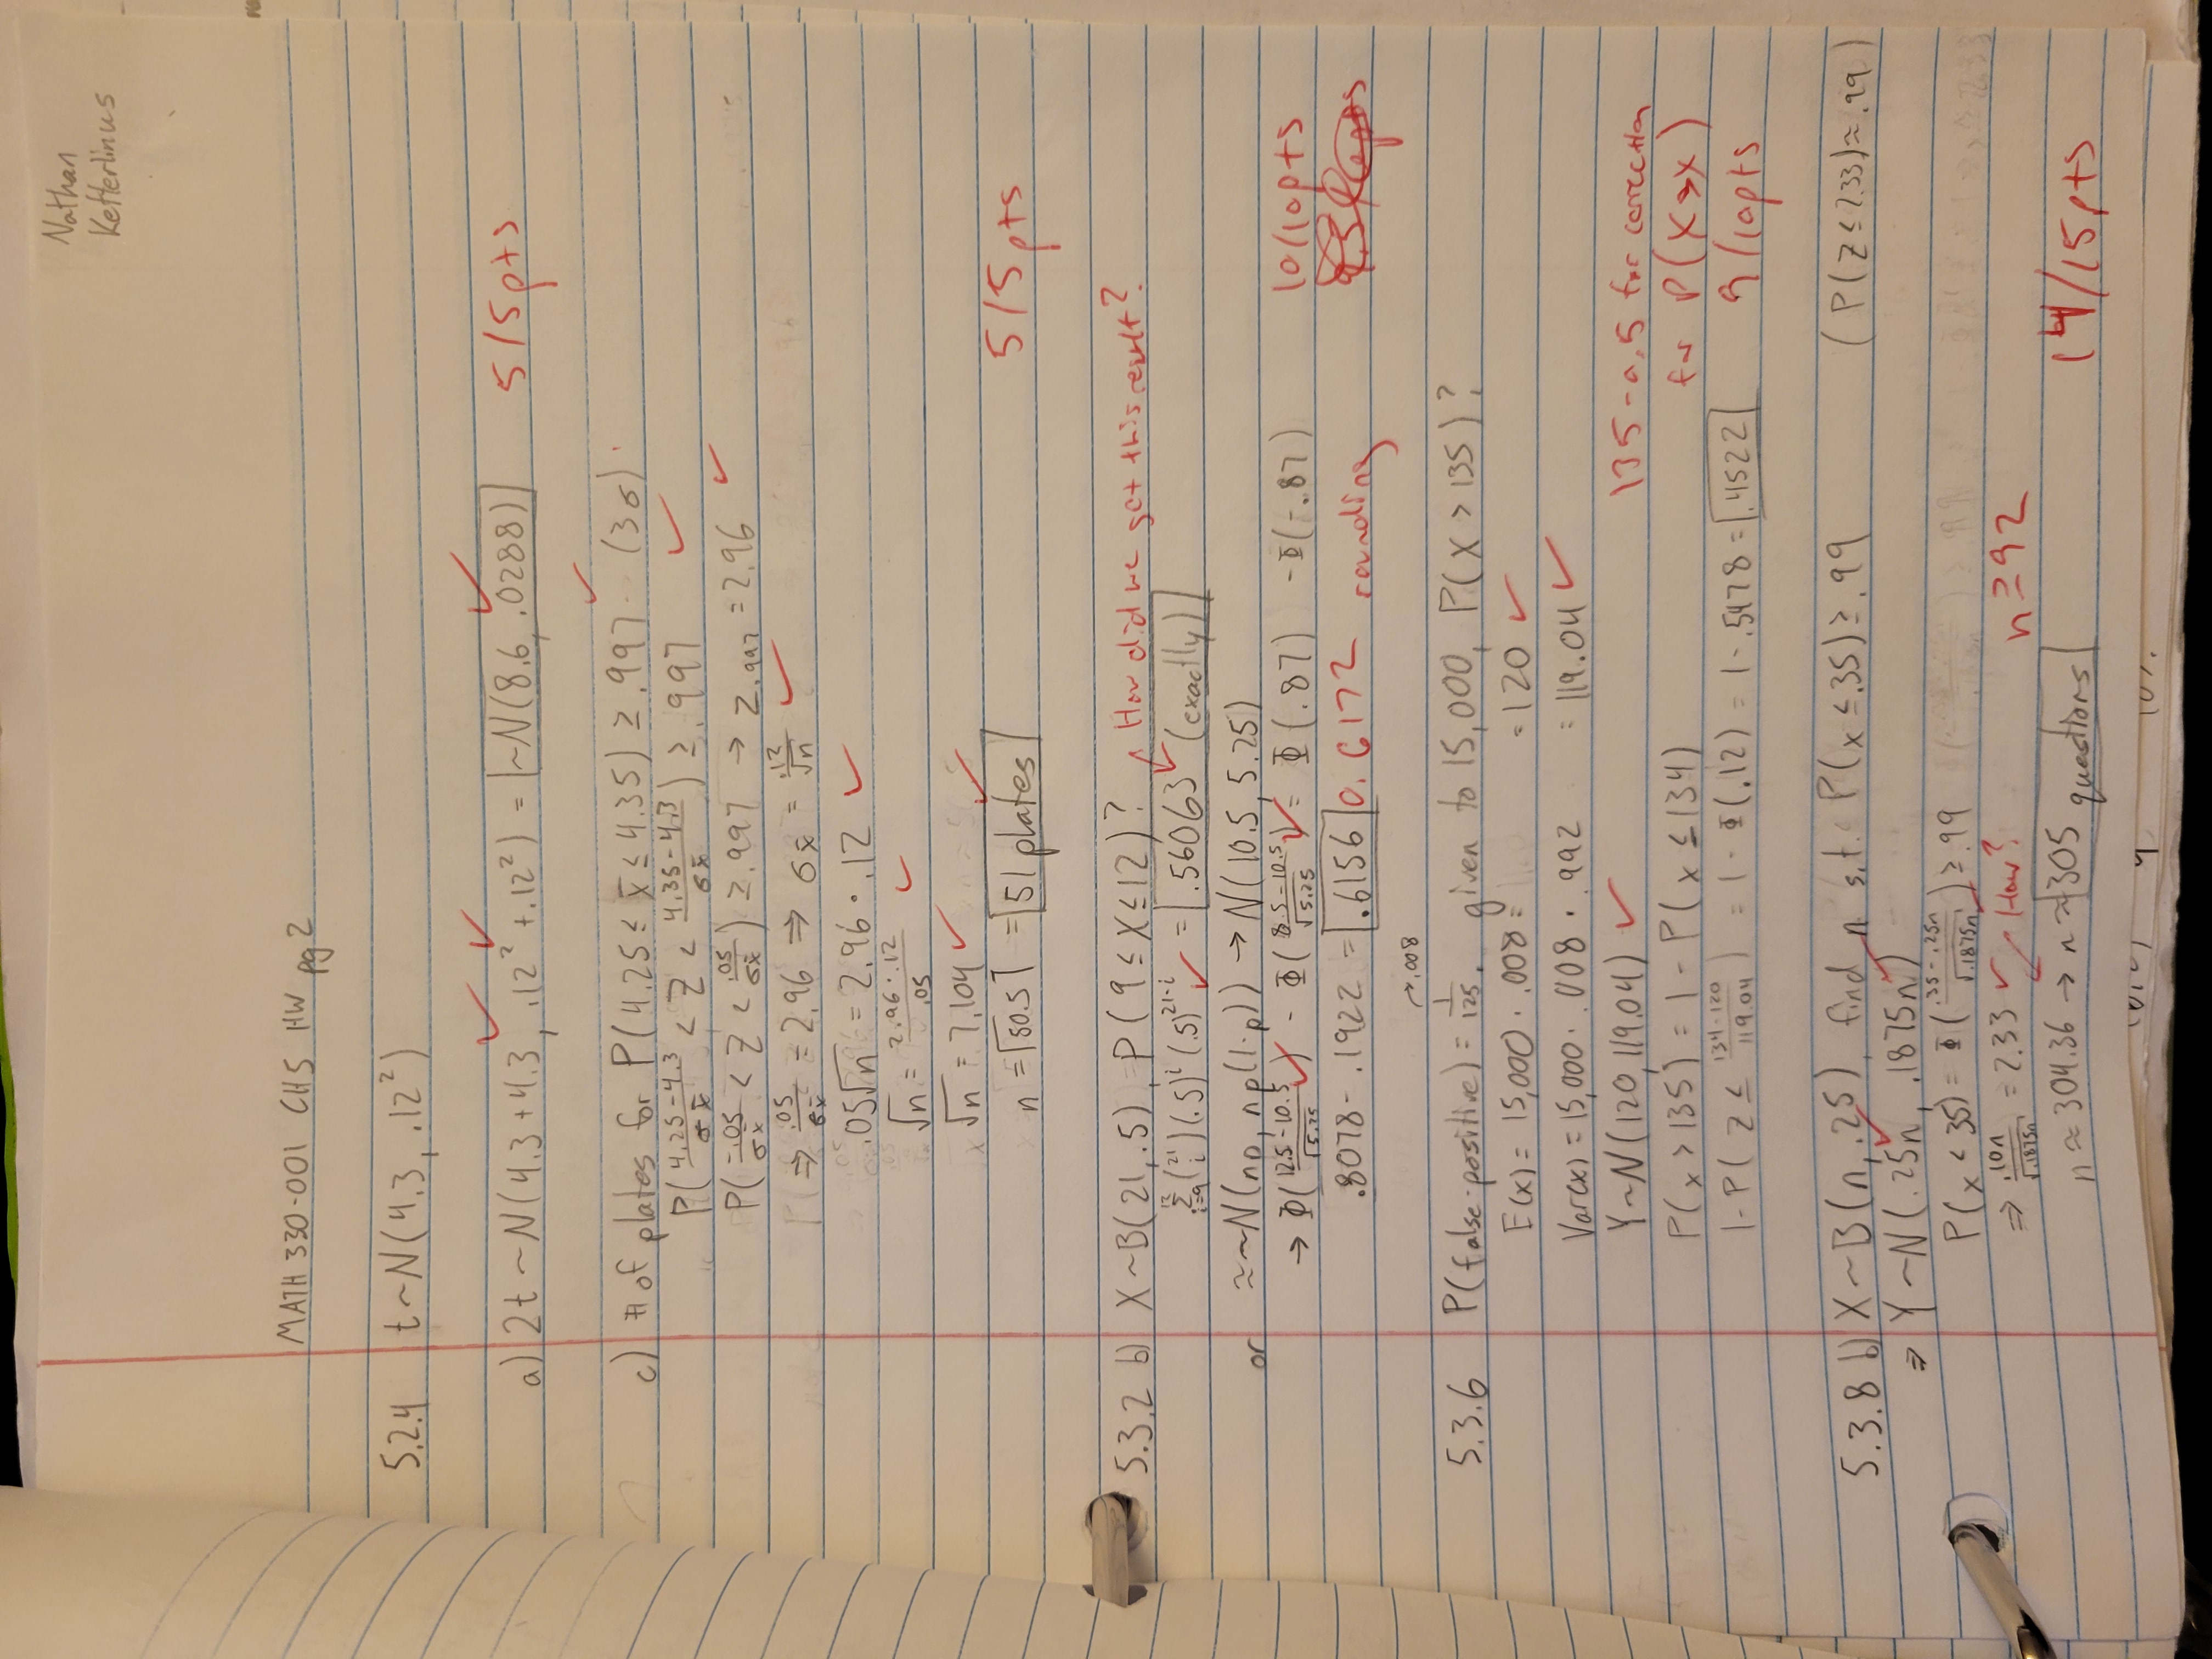 Nathan
Ketterlinus
MATH 330-001 CH5 HW pg 2
5.2.4 t~N(4.3, .12²)
a) 2t~N(4.3+4.3, .12²+.12²) = ~N(8.6, .0288) 5/5pts
c) # of plates for P(4.25 ≤ x̄ ≤ 4.35) ≥ .997 (3σ)
P((4.25-4.3)/σx̄ < Z < (4.35-4.3)/σx̄) ≥ .997
P(-.05/σx̄ < Z < .05/σx̄) ≥ .997 → Z.997 = 2.96
⇒ .05/σx̄ = 2.96 ⇒ σx̄ = .12/√n
.05√n = 2.96 · .12
√n = 2.96·.12/.05
√n = 7.104
n = ⌈50.5⌉ = 51 plates 5/5pts
5.3.2 b) X~B(21, .5), P(9 ≤ X ≤ 12)? How did we get this result?
Σ_{i=9}^{12} (21 i)(.5)^i (.5)^{21-i} = .56063 (exactly)
or ≈~N(np, np(1-p)) → N(10.5, 5.25)
→ Φ((12.5-10.5)/√5.25) - Φ((8.5-10.5)/√5.25) = Φ(.87) - Φ(-.87) 10/10pts
.8078 - .1922 = .6156 0.6172 rounding
→.008
5.3.6 P(false-positive) = 1/125. given to 15,000, P(X > 135)?
E(x) = 15,000 · .008 = = 120
Var(x) = 15,000 · .008 · .992 = 119.04
Y~N(120, 119.04) 135-0.5 for correction
P(x > 135) = 1 - P(x ≤ 134) for P(X>x)
1-P(Z ≤ (134-120)/119.04) = 1-Φ(.12) = 1-.5478 = .4522 9/10pts
5.3.8 b) X~B(n, .25), find n s.t. P(x ≤ .35) ≥ .99 (P(Z ≤ 2.33) ≈ .99)
⇒ Y~N(.25n, .1875n)
P(x < 35) = Φ((.35-.25n)/√.1875n) ≥ .99
⇒ .10n/√.1875n = 2.33 How? n ≥ 92
n ≈ 304.36 → n ≈ 305 questions 14/15pts